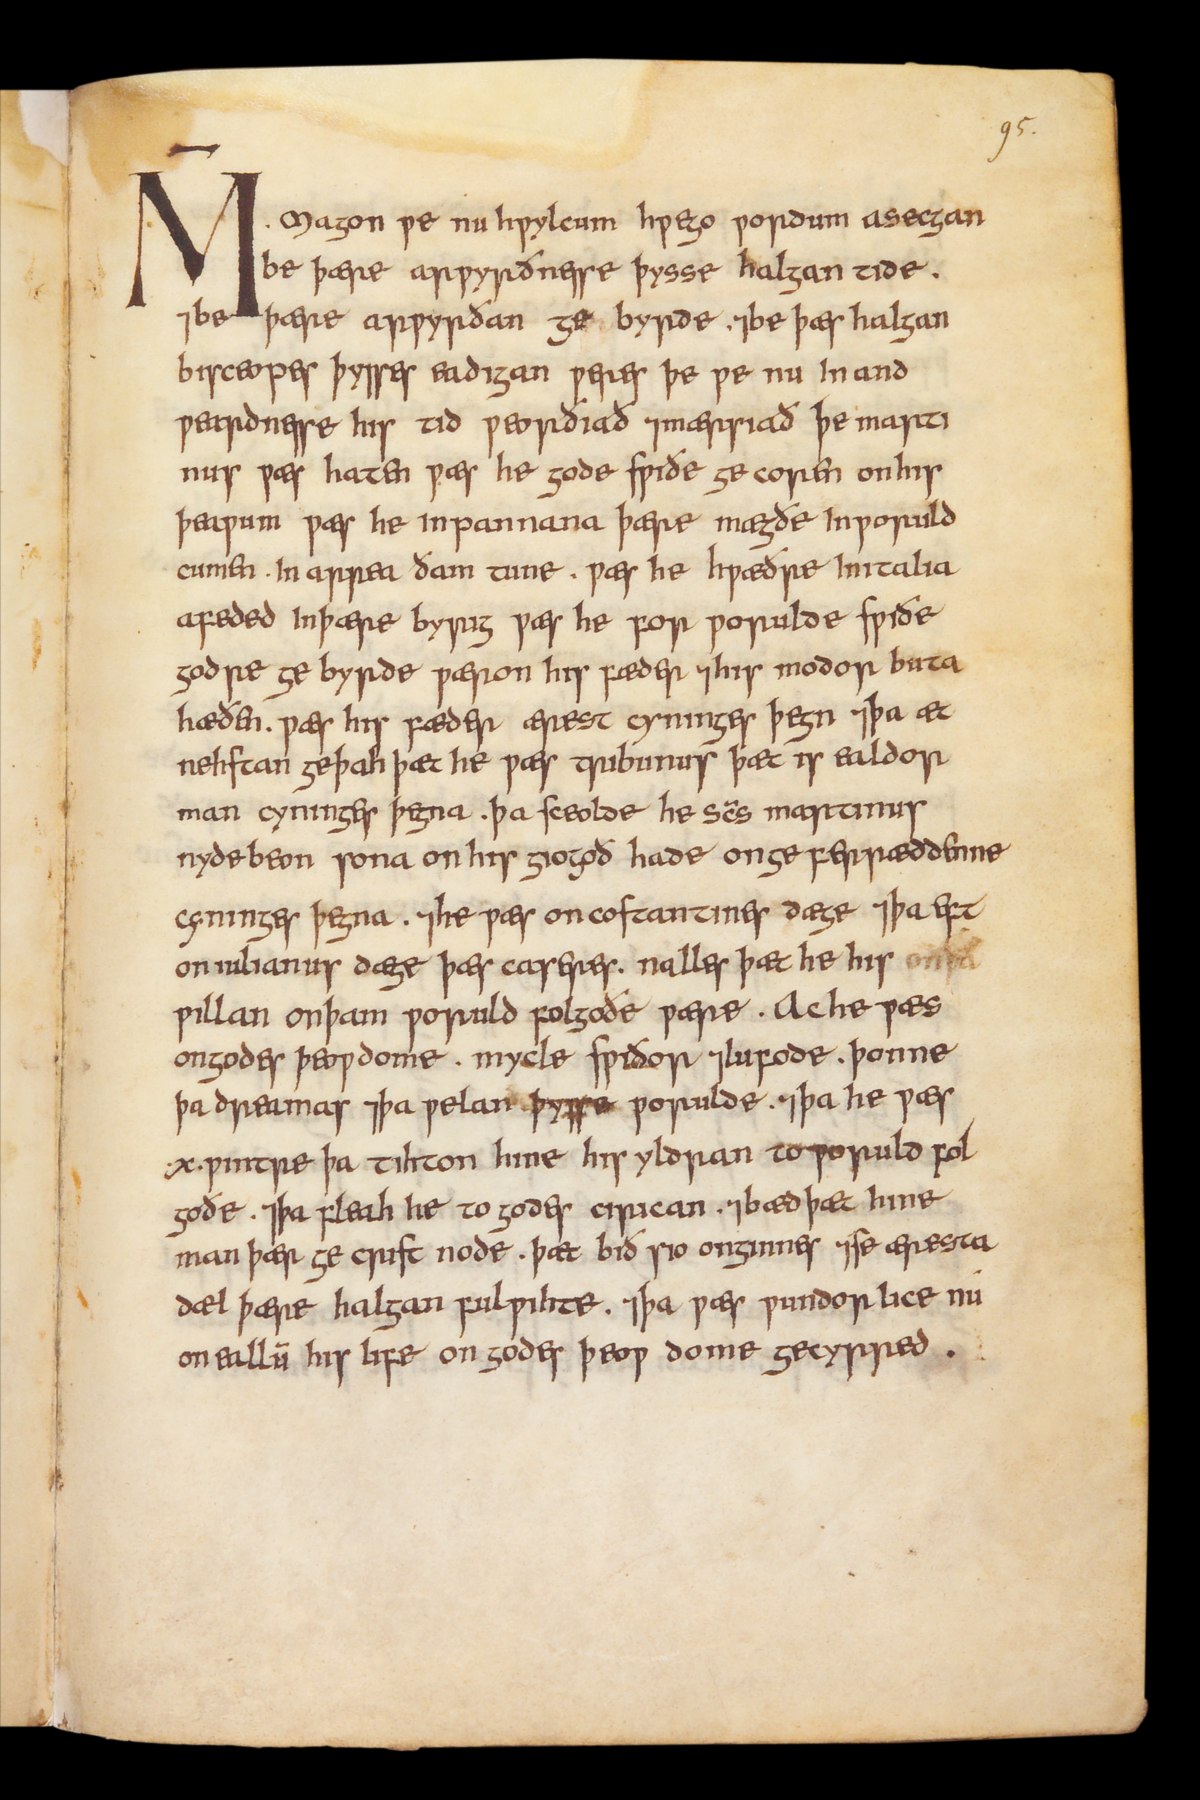 95.
M̄
. Magon ƿe nu hƿylcum hƿego ƿordum asecgan
be þære arƿyrðnesse þysse halgan tide .
⁊be þære arƿyrðan ge byrde . ⁊be þæs halgan
bisceopes þysses eadigan ƿeres þe ƿe nu In and
ƿeardnesse his tid ƿeorðiað ⁊mærsiað þe marti
nus ƿæs haten ƿæs he gode sƿiðe ge coren on his
þeaƿum ƿæs he in pannana þære mægðe In ƿoruld
cumen . In arrea ðam tune . ƿæs he hƿæðre In italia
afeded In þære byrig ƿæs he for ƿorulde sƿiðe
godre ge byrde ƿæron his fæder ⁊his modor buta
hæðen . ƿæs his fæder ærest cyninges þegn ⁊þa æt
nehstan geþah þæt he ƿæs tribunus þæt is ealdor
man cyninges þegna . þa sceolde he sc̄s martinus
nyde beon sona on his giogoð hade on ge ferræddenne
cyninges þegna . ⁊he ƿæs on costantines dæge ⁊þa eft
on iulianus dæge þæs caseres . nalles þæt he his
ƿillan on þam ƿoruld folgoðe ƿære . Ac he ƿæs
on godes þeoƿdome . mycle sƿiðor ⁊lufode . þonne
þa dreamas ⁊þa ƿelan þysse ƿorulde . ⁊þa he ƿæs
.x. ƿintre þa tihton hine his yldran to ƿoruld fol
goðe . ⁊þa fleah he to godes cirican . ⁊bæd þæt hine
man þær ge crist node . þæt bið sio onginnes ⁊se æresta
dæl þære halgan fulƿihte . ⁊þa ƿæs ƿundor lice nú
on eallū his life on godes þeoƿ dome gecyrred .